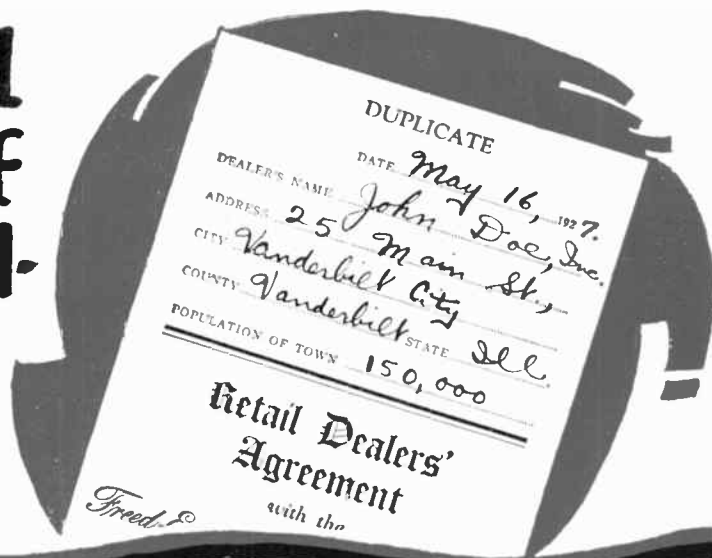 DUPLICATE
DATE May 16, 1927.
DEALER'S NAME John Doe, Inc.
ADDRESS 25 Main St.,
CITY Vanderbilt City
COUNTY Vanderbilt STATE Ill.
POPULATION OF TOWN 150,000
Retail Dealers'
Agreement
with the
Freed-E